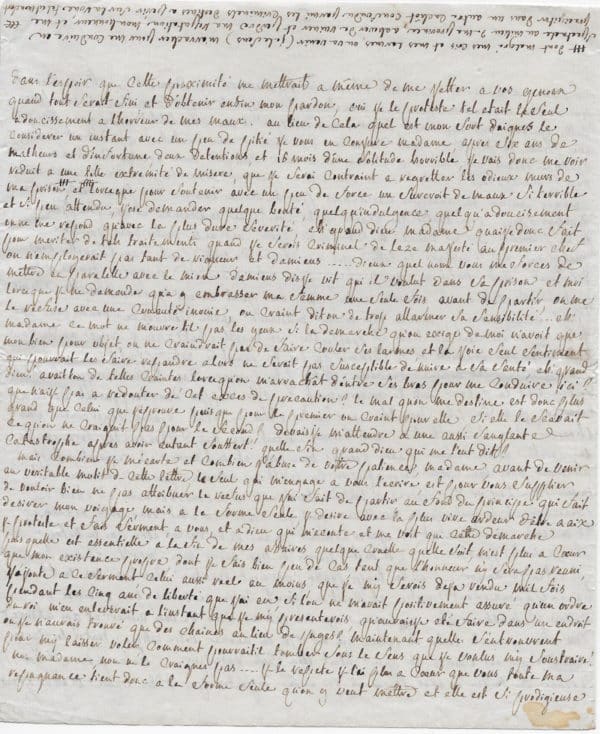 dans l'espoir que cette proximité me mettrait a même de me jetter a vos genoux
quand tout serait fini et d'obtenir enfin mon pardon, oui je le proteste tel etait le seul
adoucissement a l'horreur de mes maux. au lieu de cela quel est mon sort daignés le
considerer un instant avec un peu de pitié je vous en conjure madame apres six ans de
malheurs et d'infortune deux detentions et 16 mois d'une solitude horrible je vais donc me voir
reduit a une telle extremité de misere, que je serai contraint a regretter les odieux murs de
ma prison et lorsque pour soutenir avec un peu de force un surcroit de maux si terrible
et si peu attendu, j'ose demander quelque bonté quelqu'indulgence quelqu'adoucissement
on ne me repond qu'avec la plus dure severité, eh quand dieu madame qu'ai je donc fait
pour meriter de tels traitements quand je serois criminel de leze majesté au premier chef
on n'employerait pas tant de rigueur et damiens .... dieux quel nom vous me forcés de
mettre en parallele avec le mien damiens disje vit qui il voulut dans sa prison et moi
lorsque je ne demande qu'a embrasser ma femme une seule fois avant de partir on me
le refuse avec une cruauté inouie, on craint dit on de trop allarmer sa sensibilité! eh
madame ce mot ne m'ouvre til pas les yeux si la demarche qu'on exige de moi n'avoit que
mon bien pour objet, on ne craindrait pas de faire couler ses larmes et la joie seul sentiment
qui pourrait les faire repandre alors ne serait pas susceptible de nuire a sa santé eh grand
dieu avait on de telles craintes lorsqu'on m'arrachat d'entre ses bras pour me conduire ici!
que n'ai je pas a redouter de cet exces de precaution! le mal qu'on me destine est donc plus
grand que celui que j'eprouve puisque pour le premier on craint pour elle si elle le scavait
ce qu'on ne craignit pas pour le second! devais je m'attendre a une aussi sanglante
catastrophe apres avoir autant souffert! quelle fin grand dieu qui me l'eut dit!
mais combien je m'ecarte et combien j'abuse de votre patience, madame, avant de venir
au veritable motif de cette lettre le seul qui m'engage a vous l'ecrire est pour vous supplier
de vouloir bien ne pas attribuer le refus que j'ai fait de partir au fond du principe qui fait
desirer mon voyage mais a la forme seule je desire avec la plus vive ardeur d'être a aix
je proteste et fais serment a vous, et a dieu qui m'ecoute et me voit que cette demarche
puisqu'elle est essentielle a la fin de mes affaires quelque cruelle qu'elle soit m'est plus a coeur
que mon existence propre dont je fais bien peu de cas tant que l'honneur n'y sera pas reuni,
j'ajoute a ce serment celui aussi vrai au moins, que je m'y serois deja rendu mil fois
pendant les cinq ans de liberté que j'ai eu si l'on ne m'avait positivement assuré qu'un ordre
du roi m'en enleverait a l'instant que je m'y presenterois, qu'aurais je eté faire dans un endroit
ou je n'aurais trouvé que des chaines au lieu de juges! maintenant qu'elle s'entrouvrent
pour m'y laisser voler comment pourrait il tomber sous le sens que je voulus m'y soustraire!
non madame, non ne le craignés pas .... je le repete je l'ai plus a coeur que vous, toute ma
repugnance tient donc a la forme seule qu'on y veut mettre et elle est si prodigieuse